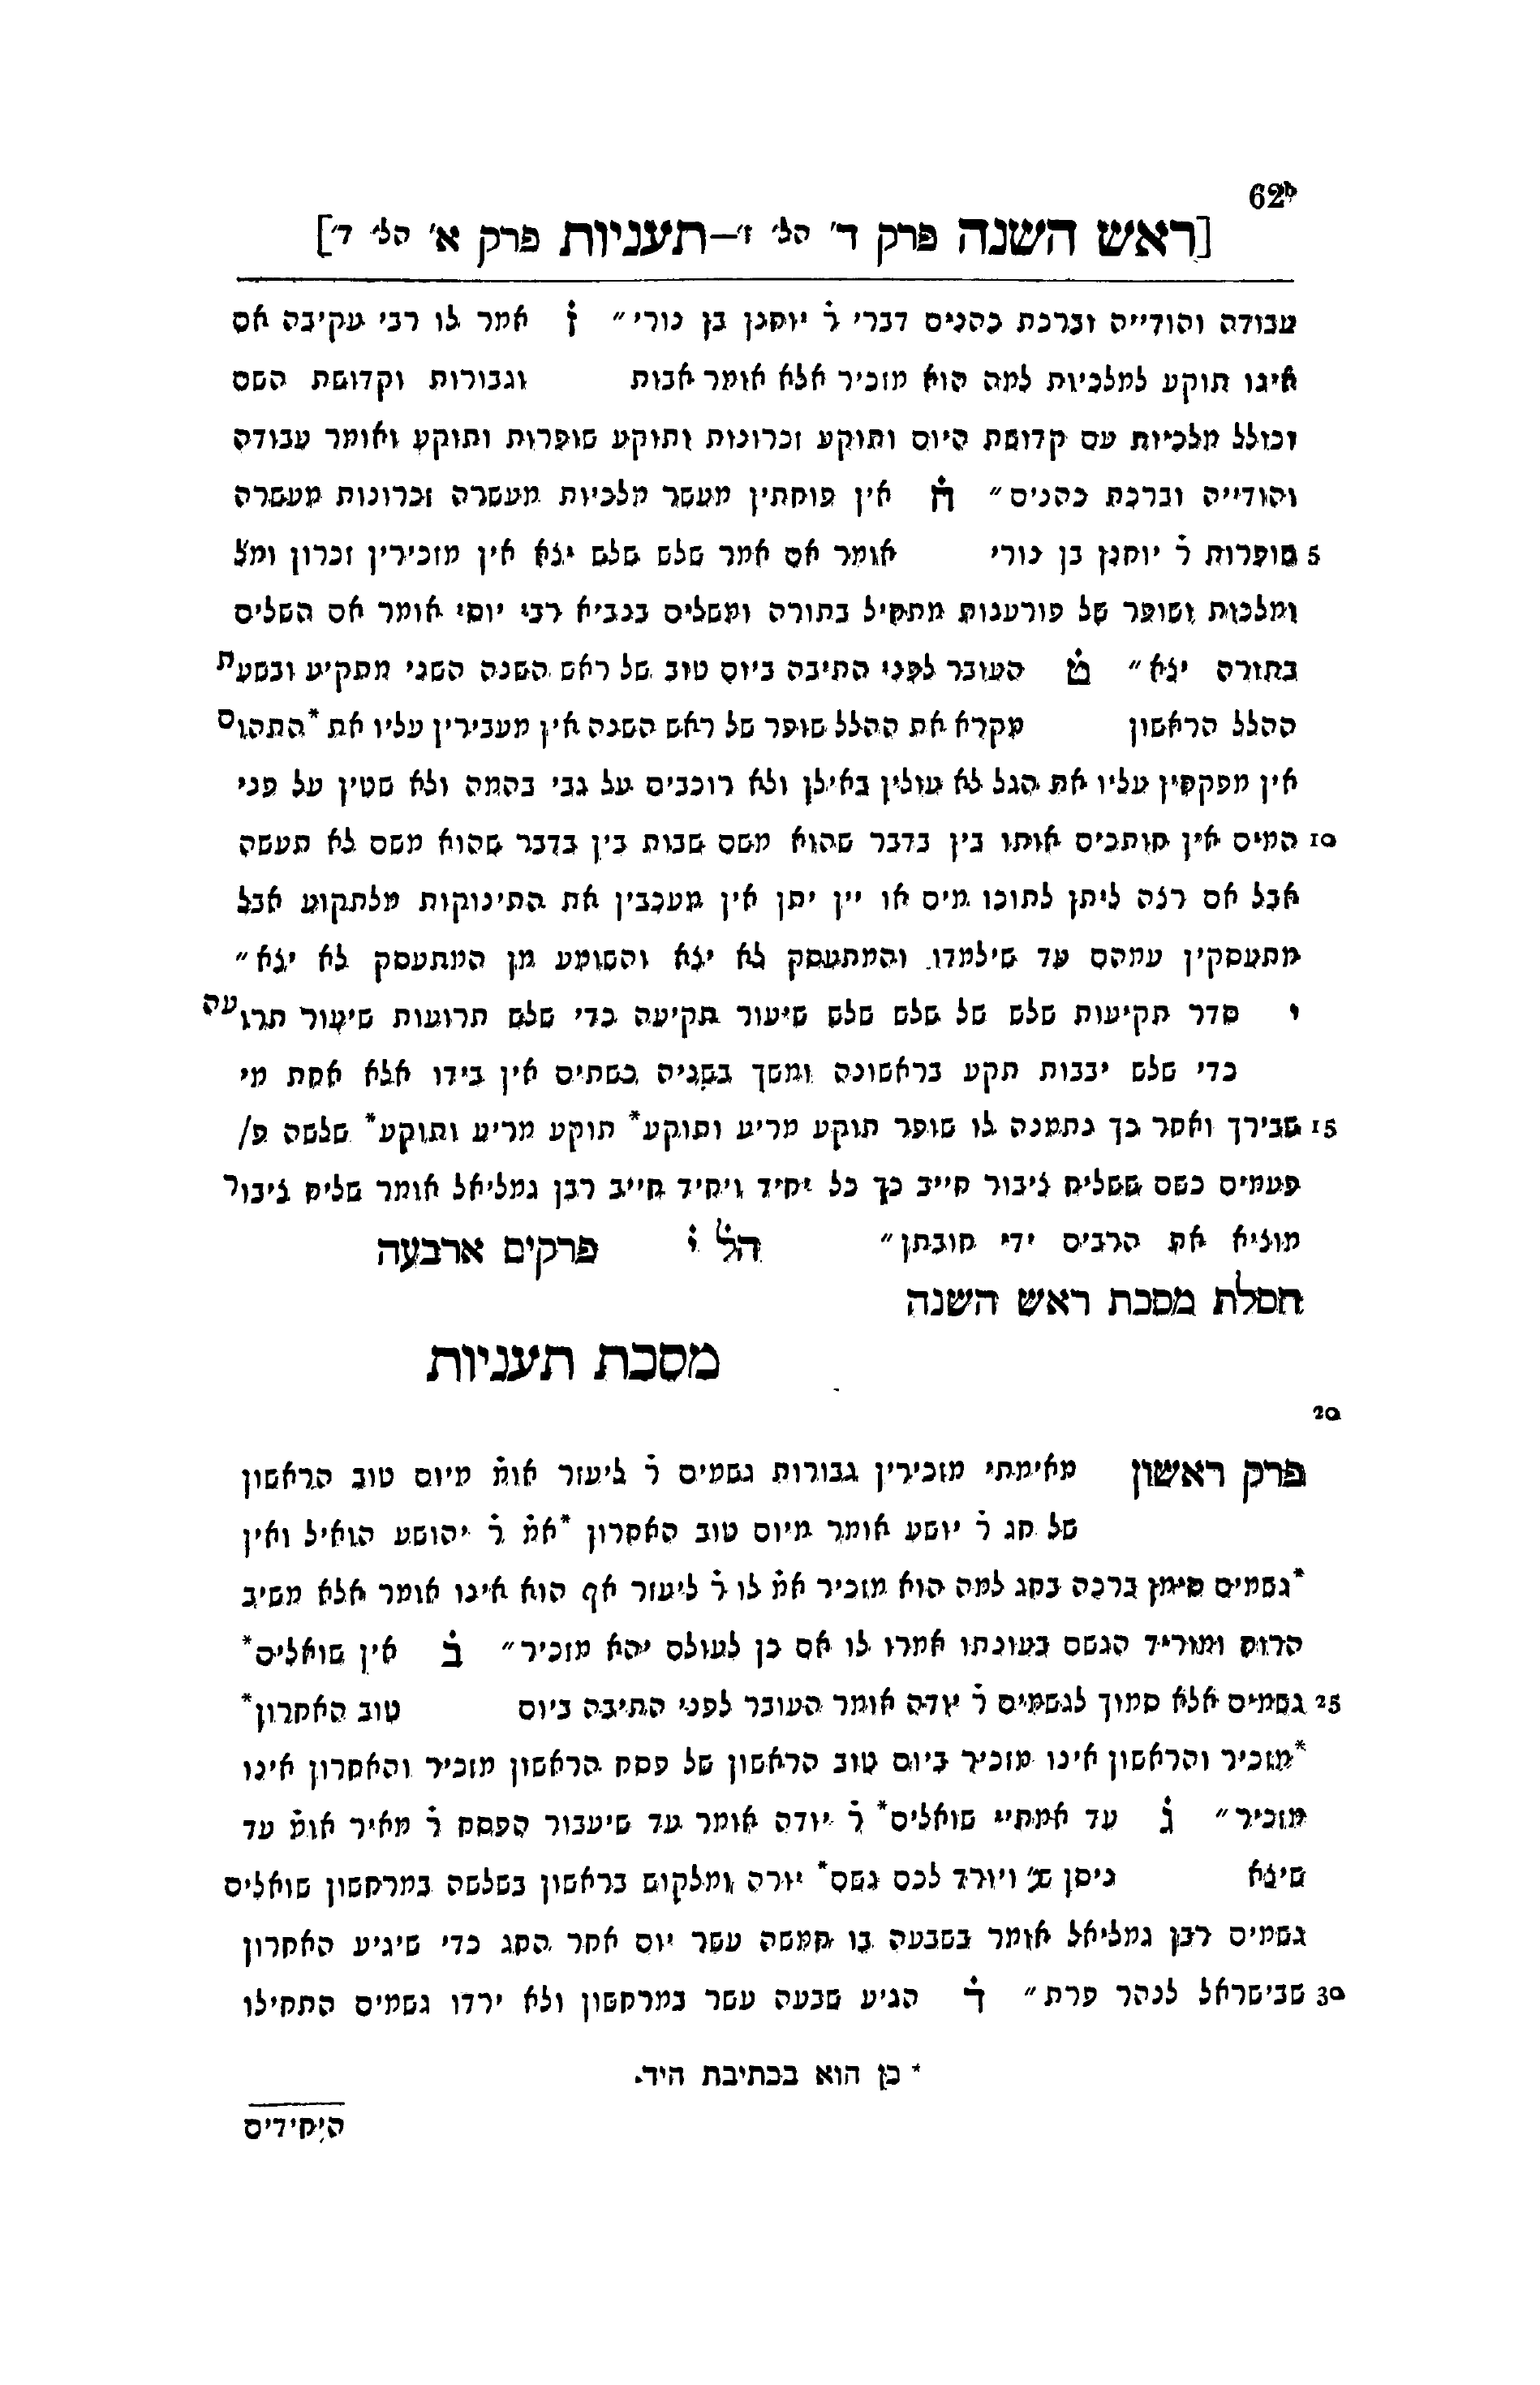 62b
[ראש השנה פרק ד׳ הל׳ ז׳–תעניות פרק א׳ הל׳ ד׳]
עבודה והודייה וברכת כהנים דברי ר̇ יוחנן בן נורי״ ז̇ אמר לו רבי עקיבה אם
אינו תוקע למלכיות למה הוא מזכיר אלא אומר אבות וגבורות וקדושת השם
וכולל מלכיות עם קדושת היום ותוקע זכרונות ותוקע שופרות ותוקע ואומר עבודה
והודייה וברכת כהנים״ ח̇ אין פוחתין מעשר מלכיות מעשרה זכרונות מעשרה
5 שופרות ר̇ יוחנן בן נורי אומר אם אמר שלש שלש יצא אין מזכירין זכרון ומל׳
ומלכות ושופר של פורענות מתחיל בתורה ומשלים בנביא רבי יוסי אומר אם השלים
בתורה יצא״ ט̇ העובר לפני התיבה ביום טוב של ראש השנה השני מתקיע ובשעת
ההלל הראשון מקרא את ההלל שופר של ראש השנה אין מעבירין עליו את *התהום
אין מפקחין עליו את הגל לא עולין באילן ולא רוכבים על גבי בהמה ולא שטין על פני
10 המים אין חותכים אותו בין בדבר שהוא משם שבות בין בדבר שהוא משם לא תעשה
אבל אם רצה ליתן לתוכו מים או יין יתן אין מעכבין את התינוקות מלתקוע אבל
מתעסקין עמהם עד שילמדו והמתעסק לא יצא והשומע מן המתעסק לא יצא״
י סדר תקיעות שלש של שלש שלש שיעור תקיעה כדי שלש תרועות שיעור תרועה
כדי שלש יבבות תקע בראשונה ומשך בשניה כשתים אין בידו אלא אחת מי
15 שבירך ואחר כך נתמנה לו שופר תוקע מריע ותוקע* תוקע מריע ותוקע* שלשה פ/
פעמים כשם ששליח ציבור חייב כך כל יחיד ויחיד חייב רבן גמליאל אומר שליח ציבור
מוציא את הרבים ידי חובתן״ הל̇ י̇ פרקים ארבעה
חסלת מסכת ראש השנה
מסכת תעניות
20
פרק ראשון מאימתי מזכירין גבורות גשמים ר̇ ליעזר אומ̇ מיום טוב הראשון
של חג ר̇ יושע אומר מיום טוב האחרון *אמ̇ ר̇ יהושע הואיל ואין
*גשמים סימן ברכה בחג למה הוא מזכיר אמ̇ לו ר̇ ליעזר אף הוא אינו אומר אלא משיב
הרוח ומוריד הגשם בעונתו אמרו לו אם כן לעולם יהא מזכיר״ ב̇ אין שואלים*
25 גשמים אלא סמוך לגשמים ר̇ יודה אומר העובר לפני התיבה ביום טוב האחרון*
*מזכיר והראשון אינו מזכיר ביום טוב הראשון של פסח הראשון מזכיר והאחרון אינו
מזכיר״ ג̇ עד אמתיי שואלים* ר̇ יודה אומר עד שיעבור הפסח ר̇ מאיר אומ̇ עד
שיצא ניסן שנ׳ ויורד לכם גשם* יורה ומלקוש בראשון בשלשה במרחשון שואלים
גשמים רבן גמליאל אומר בשבעה בו חמשה עשר יום אחר החג כדי שיגיע האחרון
30 שבישראל לנהר פרת״ ד̇ הגיע שבעה עשר במרחשון ולא ירדו גשמים התחילו
* כן הוא בכתיבת היד.
היחידים